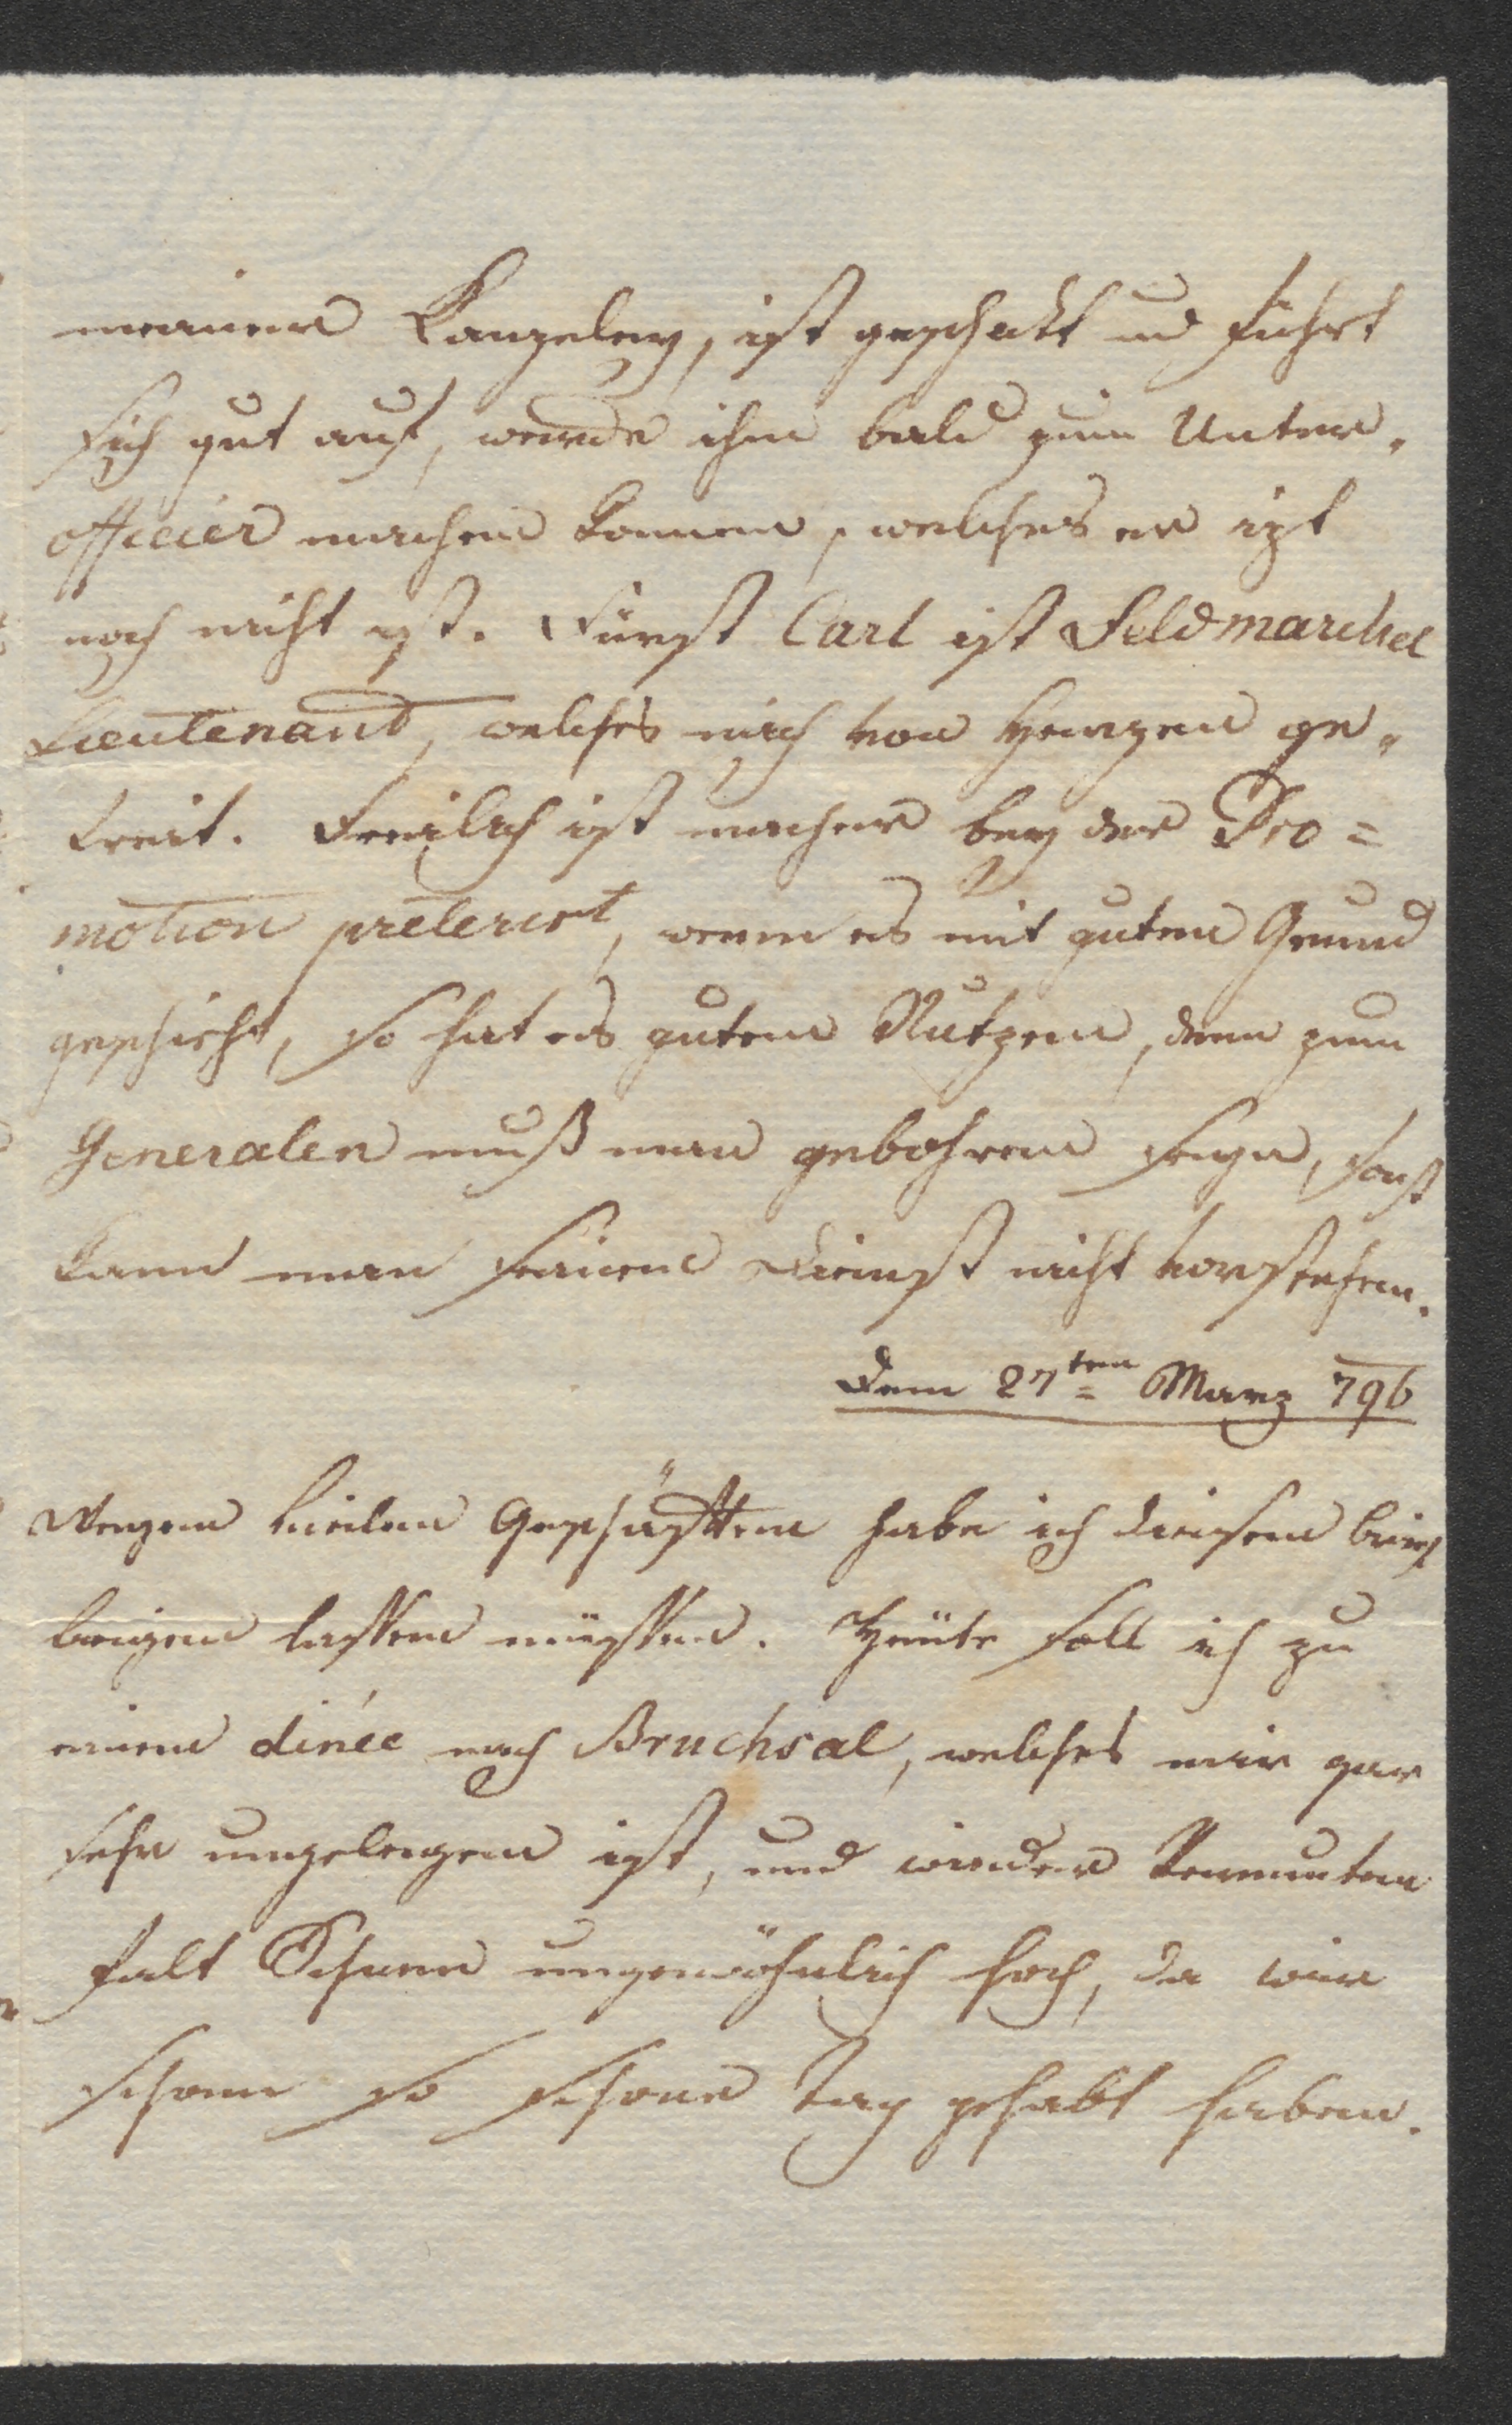 meiner Canzeley, ist geschikt und führt
sich gut auf, werde ihn bald zum Unter„
officier machen konnen, welches er izt
noch nicht ist. Fürst Carl ist Feldmarchel
Lieutenant, welches mich von Herzen ge„
freit. Freilich ist mancher bey der Pro=
motion preterirt, wenn es mit guten Grund
geschieht, so hat es guten Nutzen, den zum
Generalen muß man gebohren seyn, sonst
kann man seinen Dienst nicht vorstehen.
Den 27ten Marz 796
Wegen vielen Geschäfften habe ich diesen brief
liegen lassen müssen. Heüte soll ich zu
einem dinée nach Bruchsal, welches mir gar
sehr ungelegen ist, und wieder Vermuten
falt Schnee ungewöhnlich hoch, da wir
schonn so schone Tag gehabt haben.